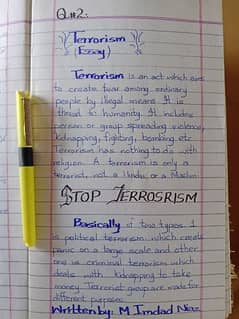 Q#2:
Terrorism
(Essay)
Terrorism is an act which aims
to create fear among ordinary
people by illegal means. It is
thread to humanity. It includes
person or group spreading violence,
kidnapping, fighting, bombing etc
Terrorism has nothing to do with
religion. A terrorism is only a
terrorist, not a Hindu or a Muslim.
STOP TERROSRISM
Basically of two types. 1
is political terrorism which creats
panic on a large scale and other
one is criminal terrorism which
deals with kidnapping to take
money. Terrorist groups are made for
different purposes.
Written by: M Imdad Niaz